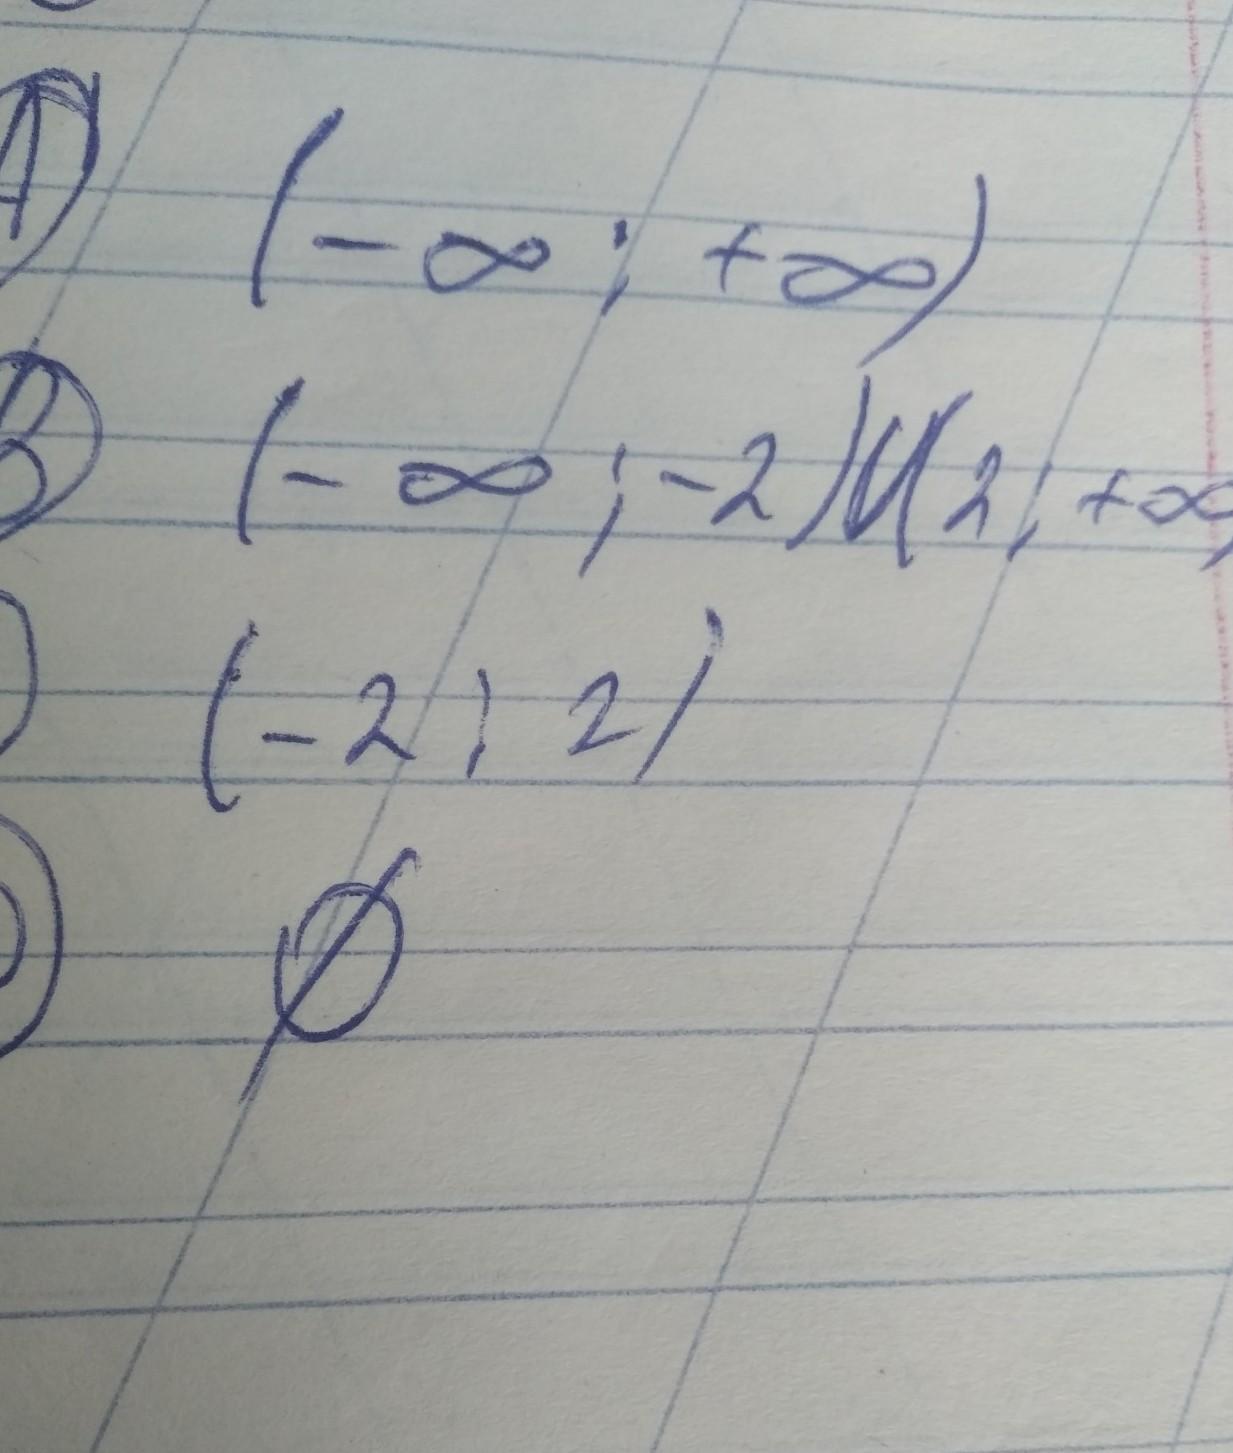 A) (-∞; +∞)
B) (-∞; -2)U(2; +∞)
(-2; 2)
∅